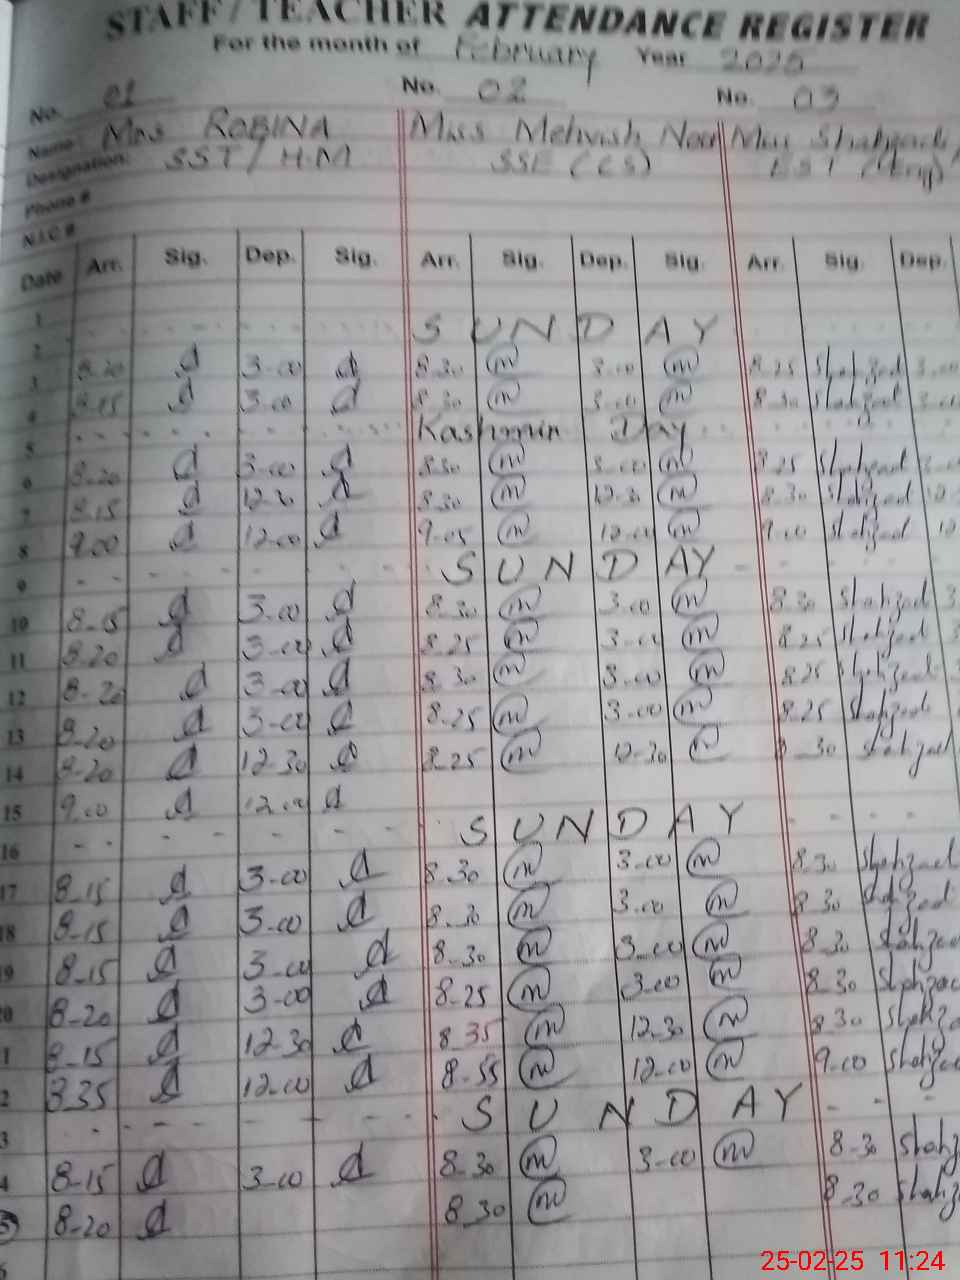 STAFF / TEACHER ATTENDANCE REGISTER
For the month of February Year 2025
No. 01 No. 02 No. 03
Name: Mrs ROBINA Miss Mehvish Miss Shahzadi
Designation: SST / H.M SSE (CS) EST (Eng)
Phone #
N.I.C #
Date Arr. Sig. Dep. Sig. Arr. Sig. Dep. Sig. Arr. Sig. Dep.
1
SUNDAY
2
8.20 d 3-00 d 8.30 m 3.00 m 8.25 Shahzad 3-00
3
8.15 d 3-00 d 8.30 m 3.00 m 8.30 Shahzad 3-00
4
Kashmir Day
5
8.20 d 3-00 d 8.30 m 3.00 m 8.25 Shahzad 3-00
6
8.15 d 12.30 d 8.30 m 12.30 m 8.30 Shahzad 12
7
9.00 d 12.00 d 9.05 m 12.00 m 9.00 Shahzad 12
8
SUNDAY
9
8-15 d 3.00 d 8.30 m 3.00 m 8.30 Shahzad 3
10
8.20 d 3-00 d 8.25 m 3-00 m 8.25 Shahzad 3
11
8-20 d 3-00 d 8.30 m 3.00 m 8.25 Shahzad
12
8-20 d 3-00 d 8.25 m 3.00 m 8.25 Shahzad
13
8-20 d 12-30 d 8-25 m 12-30 m 8.30 Shahzad
14
9.00 d 12.00 d
15
SUNDAY
16
8-15 d 3-00 d 8.30 m 3-00 m 8.30 Shahzad
17
8-15 d 3-00 d 8.30 m 3.00 m 8.30 Shahzad
18
8-15 d 3-00 d 8-30 m 3-00 m 8.30 Shahzad
19
8-20 d 3-00 d 8-25 m 3.00 m 8.30 Shahzad
20
8-15 d 12-30 d 8-35 m 12.30 m 8.30 Shahza
1
8.35 d 12-00 d 8-55 m 12-00 m 9.00 Shahza
2
SUNDAY
3
8-15 d 3-00 d 8-30 m 3-00 m 8-30 Shahz
4
8-20 d 8.30 m 8.30 Shahz
5
25-02-25 11:24